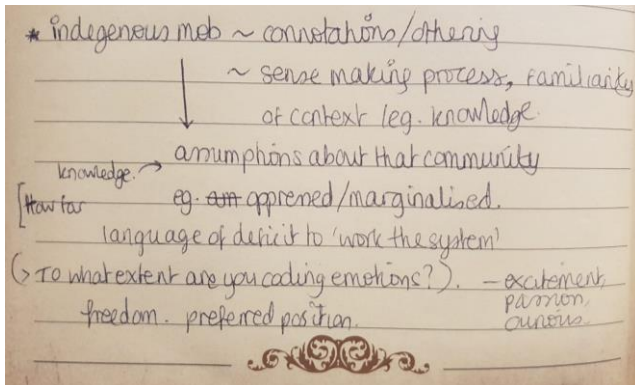 * indegenous mob ~ connotations/othering
~ sense making process, familiarity
of context (eg. knowledge.
assumptions about that community
knowledge. →
eg. oppressed/marginalised.
[How far
language of deficit to 'work the system'
(> To what extent are you coding emotions?). - excitement,
passion,
curious.
freedom. preferred position.